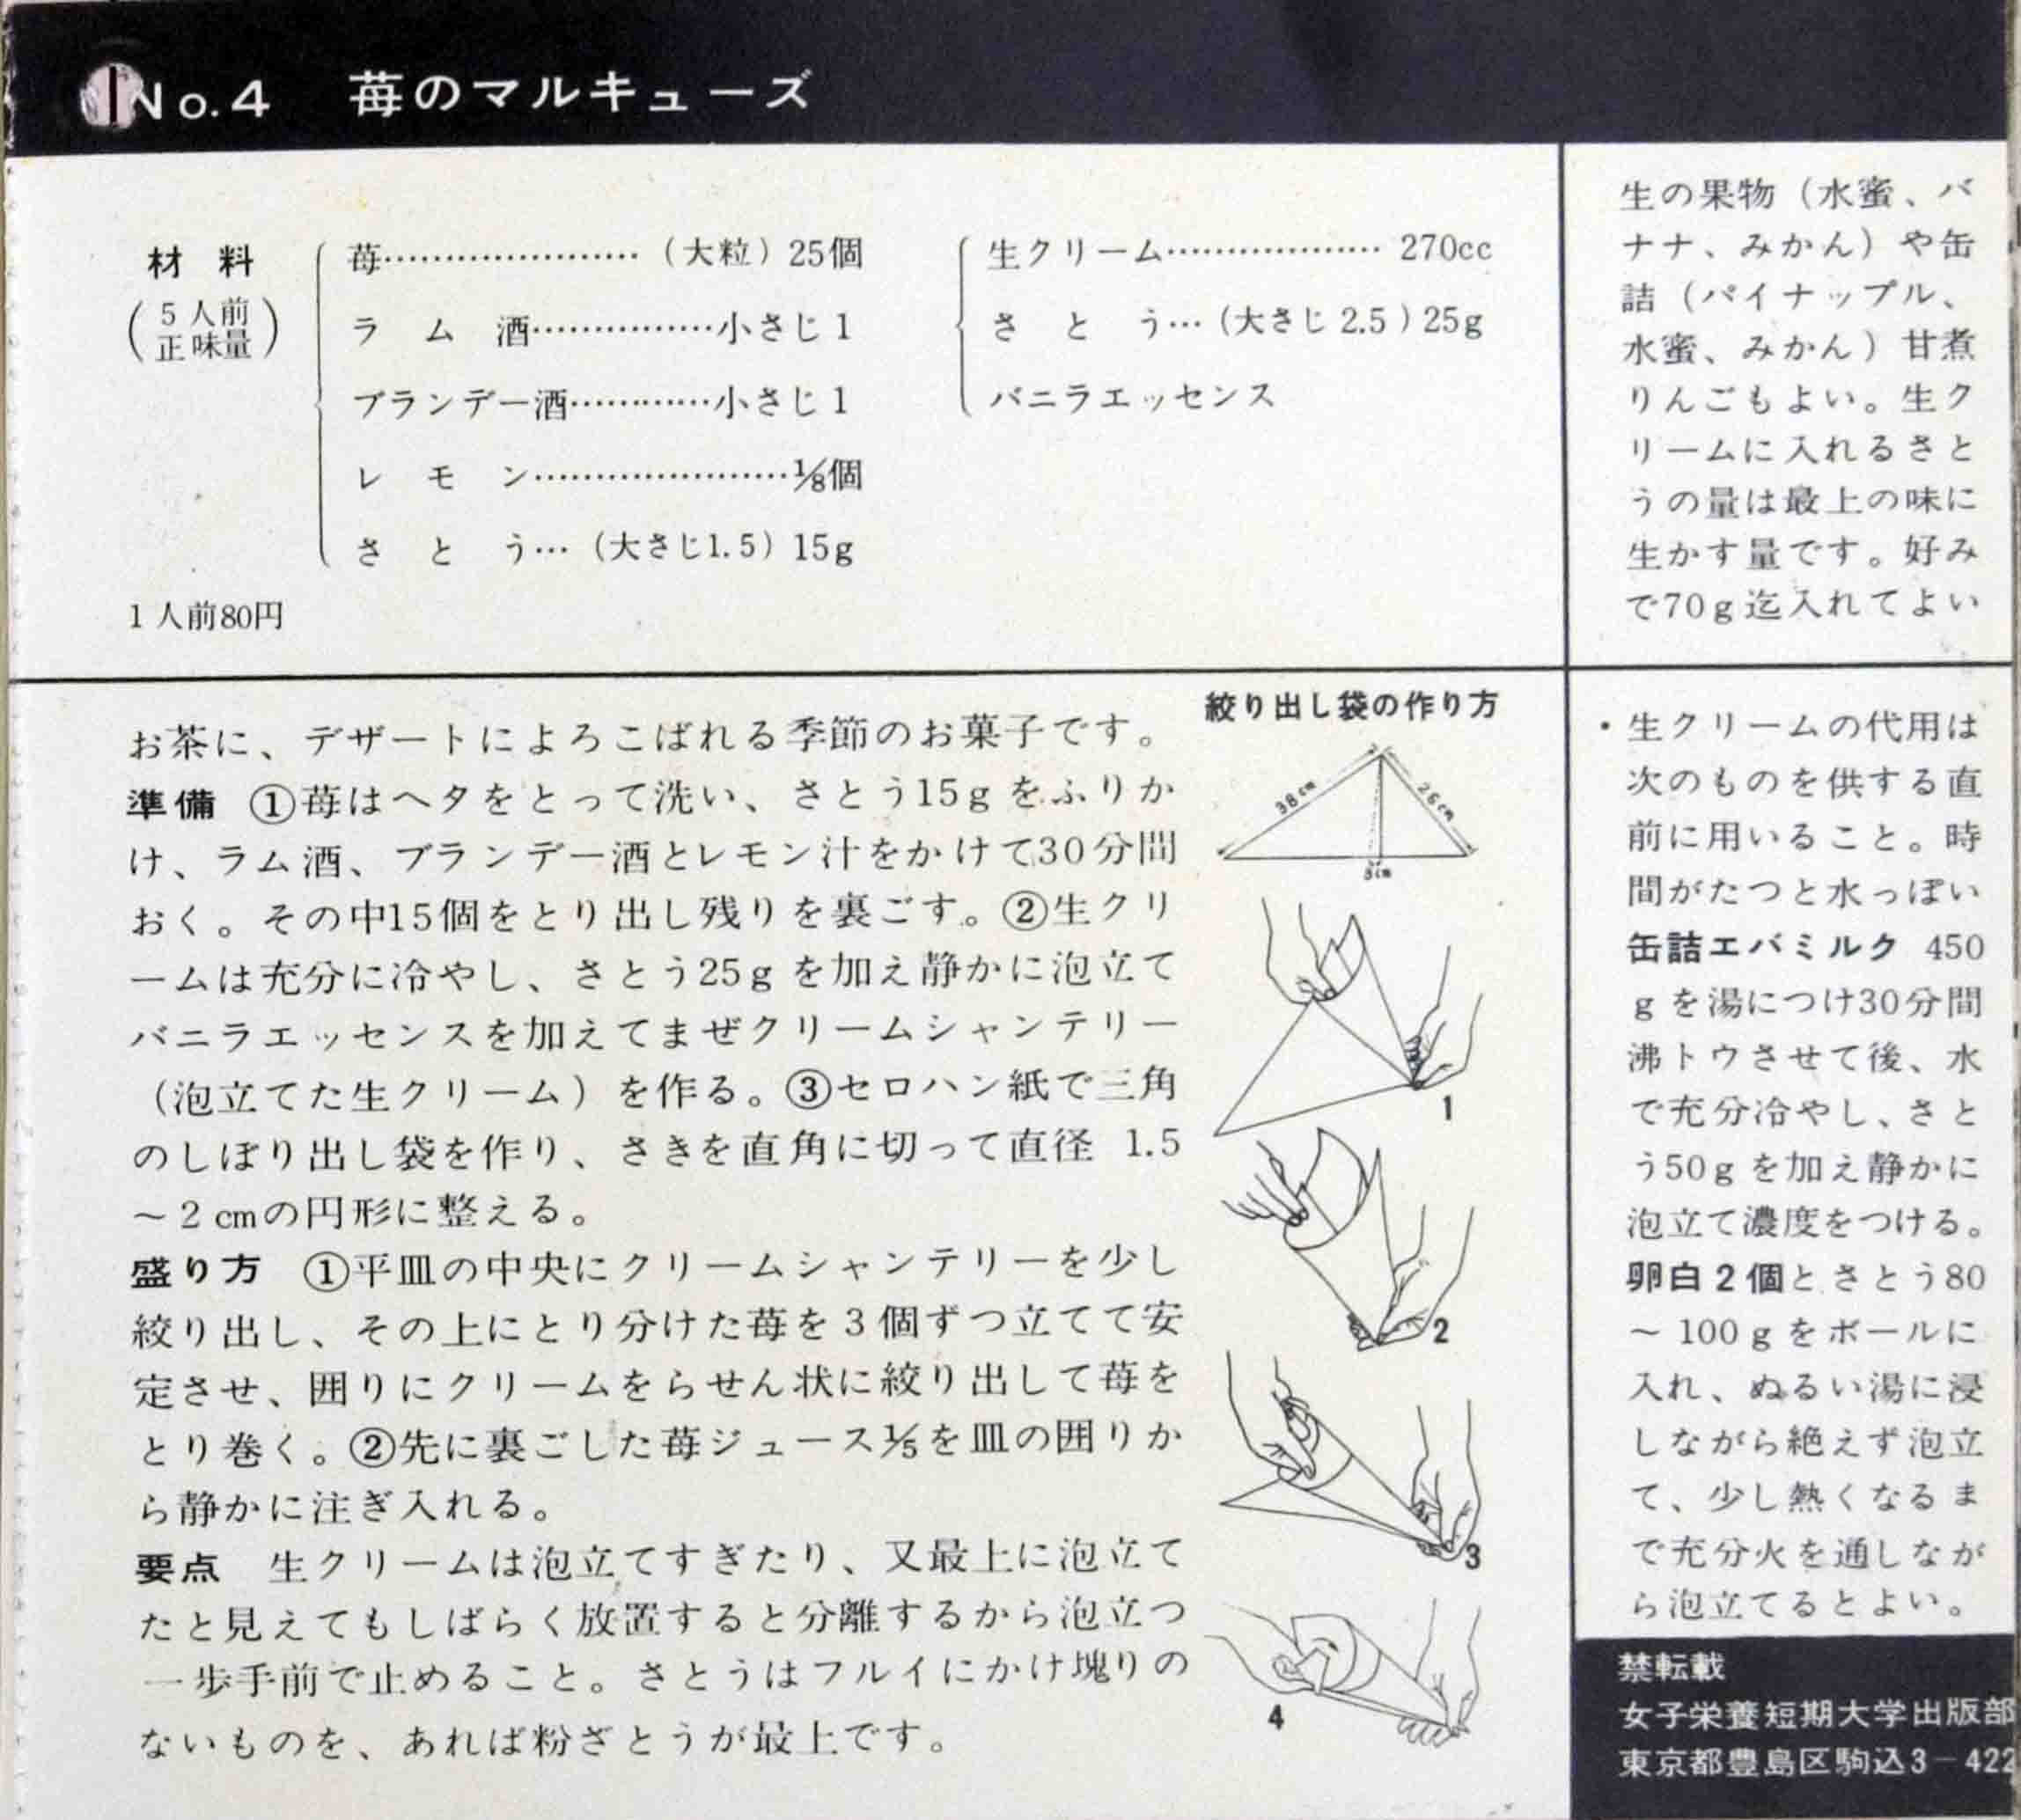 No.4 苺のマルキューズ
材料
(5人前
正味量)
苺…………………(大粒)25個
ラム酒……………小さじ1
ブランデー酒…………小さじ1
レモン…………………⅛個
さとう…(大さじ1.5)15g
生クリーム……………… 270cc
さとう…(大さじ2.5)25g
バニラエッセンス
1人前80円
生の果物(水蜜、バ
ナナ、みかん)や缶
詰(パイナップル、
水蜜、みかん)甘煮
りんごもよい。生ク
リームに入れるさと
うの量は最上の味に
生かす量です。好み
で70g迄入れてよい
お茶に、デザートによろこばれる季節のお菓子です。
準備 ①苺はヘタをとって洗い、さとう15gをふりか
け、ラム酒、ブランデー酒とレモン汁をかけて30分間
おく。その中15個をとり出し残りを裏ごす。②生クリ
ームは充分に冷やし、さとう25gを加え静かに泡立て
バニラエッセンスを加えてまぜクリームシャンテリー
(泡立てた生クリーム)を作る。③セロハン紙で三角
のしぼり出し袋を作り、さきを直角に切って直径 1.5
～2cmの円形に整える。
盛り方 ①平皿の中央にクリームシャンテリーを少し
絞り出し、その上にとり分けた苺を3個ずつ立てて安
定させ、囲りにクリームをらせん状に絞り出して苺を
とり巻く。②先に裏ごした苺ジュース⅕を皿の囲りか
ら静かに注ぎ入れる。
要点 生クリームは泡立てすぎたり、又最上に泡立て
たと見えてもしばらく放置すると分離するから泡立つ
一歩手前で止めること。さとうはフルイにかけ塊りの
ないものを、あれば粉ざとうが最上です。
絞り出し袋の作り方
38cm
26cm
1
2
3
4
・生クリームの代用は
次のものを供する直
前に用いること。時
間がたつと水っぽい
缶詰エバミルク 450
gを湯につけ30分間
沸トウさせて後、水
で充分冷やし、さと
う50gを加え静かに
泡立て濃度をつける。
卵白2個とさとう80
～100gをボールに
入れ、ぬるい湯に浸
しながら絶えず泡立
て、少し熱くなるま
で充分火を通しなが
ら泡立てるとよい。
禁転載
女子栄養短期大学出版部
東京都豊島区駒込3－422